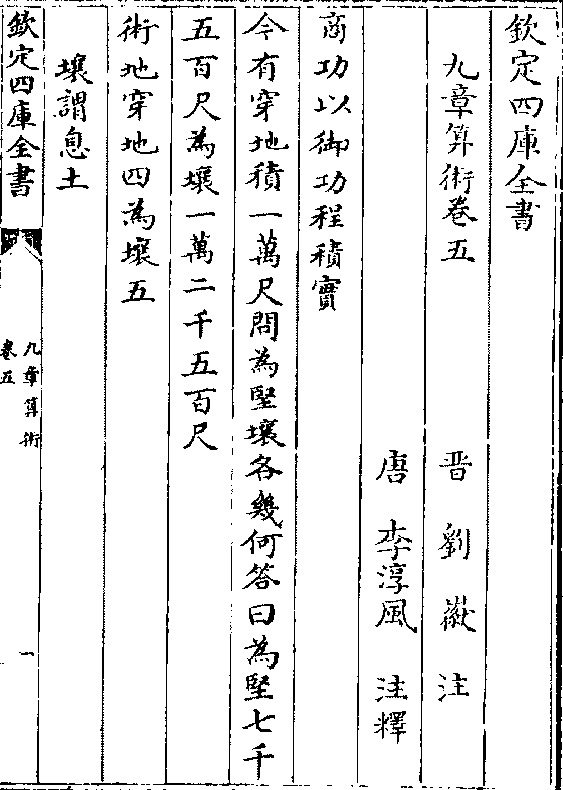 欽定四庫全書
九章算術卷五
晋 劉徽 注
唐 李淳風 注釋
商功以御功程積實
今有穿地積一萬尺問為堅壤各幾何答曰為堅七千
五百尺為壤一萬二千五百尺
術地穿地四為壤五
壤謂息土
欽定四庫全書
九章算術
卷五
一